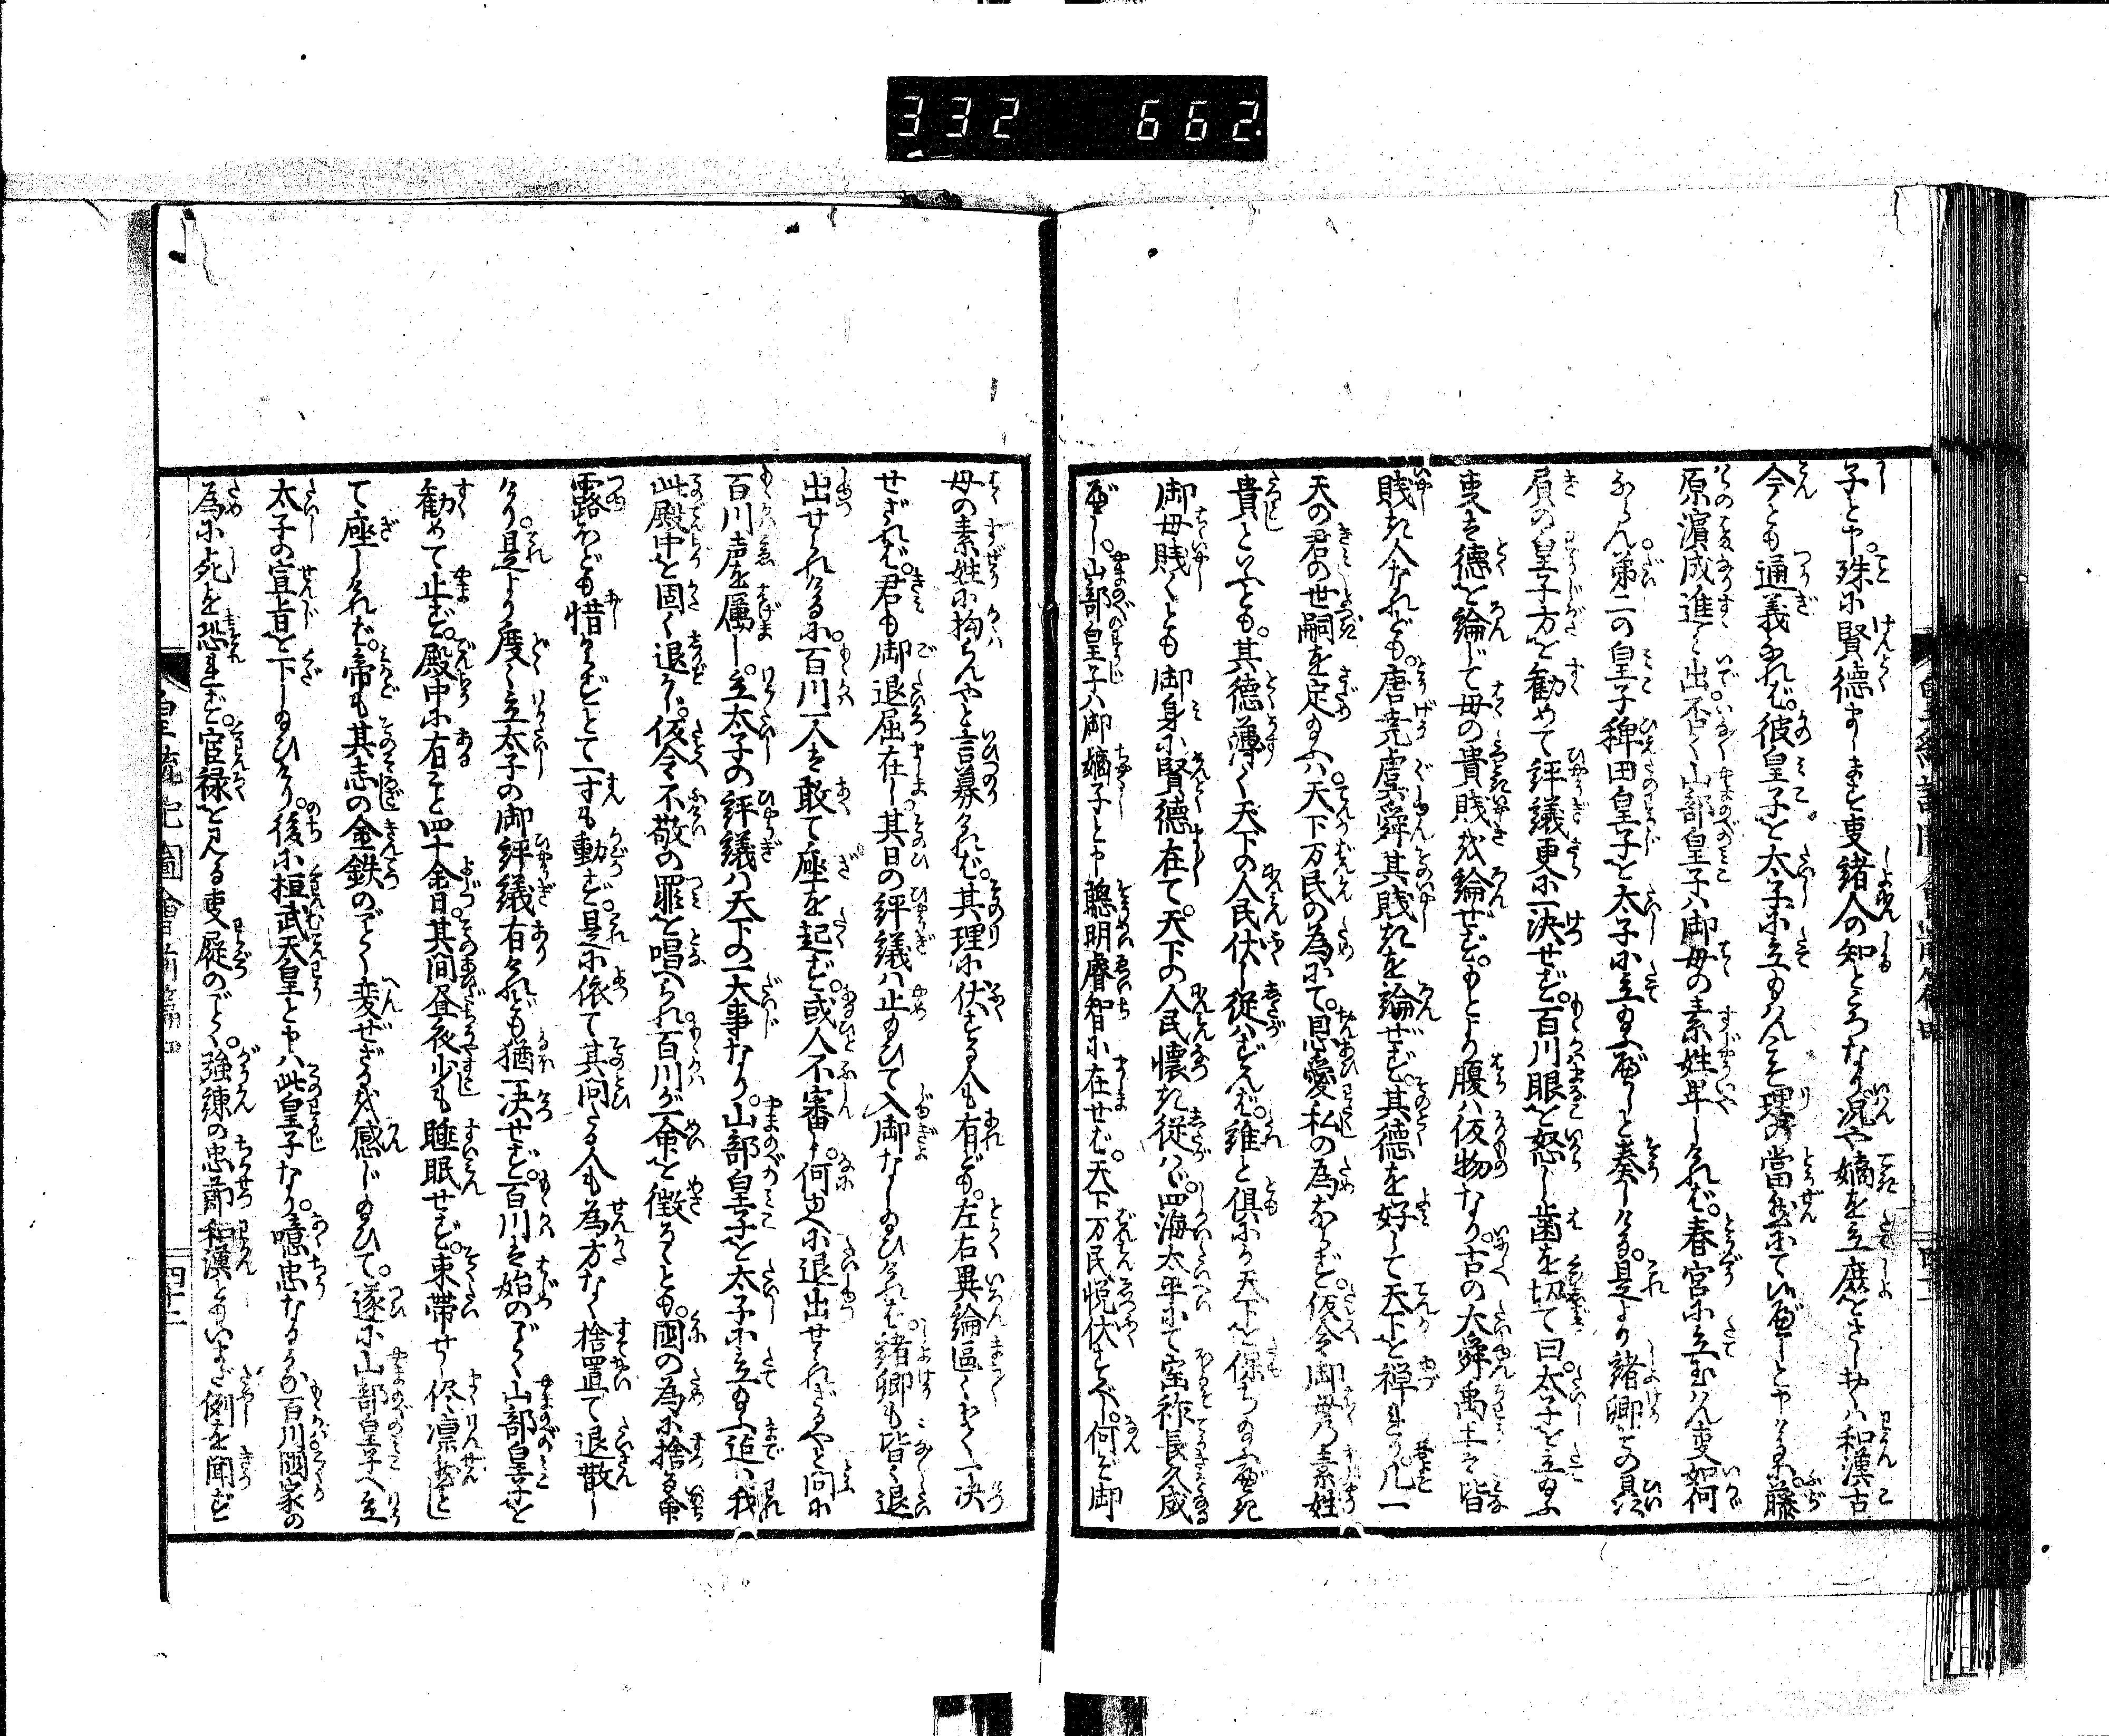 332 662
子と申。殊に賢徳まします事諸人の知ところなり。況や嫡を立庶をさし措くハ和漢古
今とも通義なれバ。彼皇子を太子に立玉ハんこそ理の當然にて候べしと申けるに。藤
原濱成進ミ出。否〻山部皇子ハ御母の素姓卑しけれバ。春宮に立玉ハん事如何
あらん。第二の皇子稗田皇子を太子に立玉ふべしと奏しける。是より諸卿各〻贔
屓の皇子方を勧めて評議更に一决せず。百川眼を怒し歯を切て曰太子を立玉ふ
事ハ徳を論じて母の貴賎ハ論ぜず。もとより腹ハ仮物なり。古の大舜禹王ハ皆
賎き人なれども。唐堯虞舜其賎きを論ぜず。其徳を好して天下を禅れり。凡一
天の君の世嗣を定玉ふハ。天下万民の為にて。恩愛私の為ならず。仮令御母の素姓
貴といふとも。其徳薄く天下の人民伏し従ハずんバ。誰と倶にか天下を保ち玉ふべき
御母賎くとも御身に賢徳在て。天下の人民懐き従ハゞ。四海太平にて宝祚長久成
べし。山部皇子ハ御嫡子と申聰明睿智に在せバ。天下万民悦伏すべし。何ぞ御
母の素姓に拘らんやと言募けれバ。其理に伏する人も有ども。左右異論區〻として一决
せざれバ。君も御退屈在し。其日の評議ハ止玉ひて入御なし玉ひけれバ。諸卿も皆〻退
出せられけるに。百川一人ハ敢て座を起ず。或人不審し。何ゆへに退出せられざるやと問に
百川声を厲し。立太子の評議ハ天下の一大事なり。山部皇子を太子に立玉ふ迄ハ我
此殿中を固く退かず。仮令不敬の罪を唱へられ百川が一命を徴るゝとも。國の為に捨る命
露ほども惜からずとて一寸も動ず。是に依て其問たる人も為方なく捨置て退散し
けり。是より度〻立太子の御評議有けれども猶一决せず。百川ハ始のごとく山部皇子を
勧めて止ず。殿中に有こと四十余日其間昼夜少も睡眠せず。束帯せし侭凛然として
て座しけれバ。帝も其志の金鉄のごとく変ぜざるを感じ玉ひて。遂に山部皇子へ立
太子の宣旨を下し玉ひけり。後に桓武天皇と申ハ此皇子なり。噫忠なるかな百川國家の
為に死を恐れず。官禄を見る事屣のごとく。強諫の忠節和漢ともいまだ例を聞ず
皇統記圖會前篇四
四十二